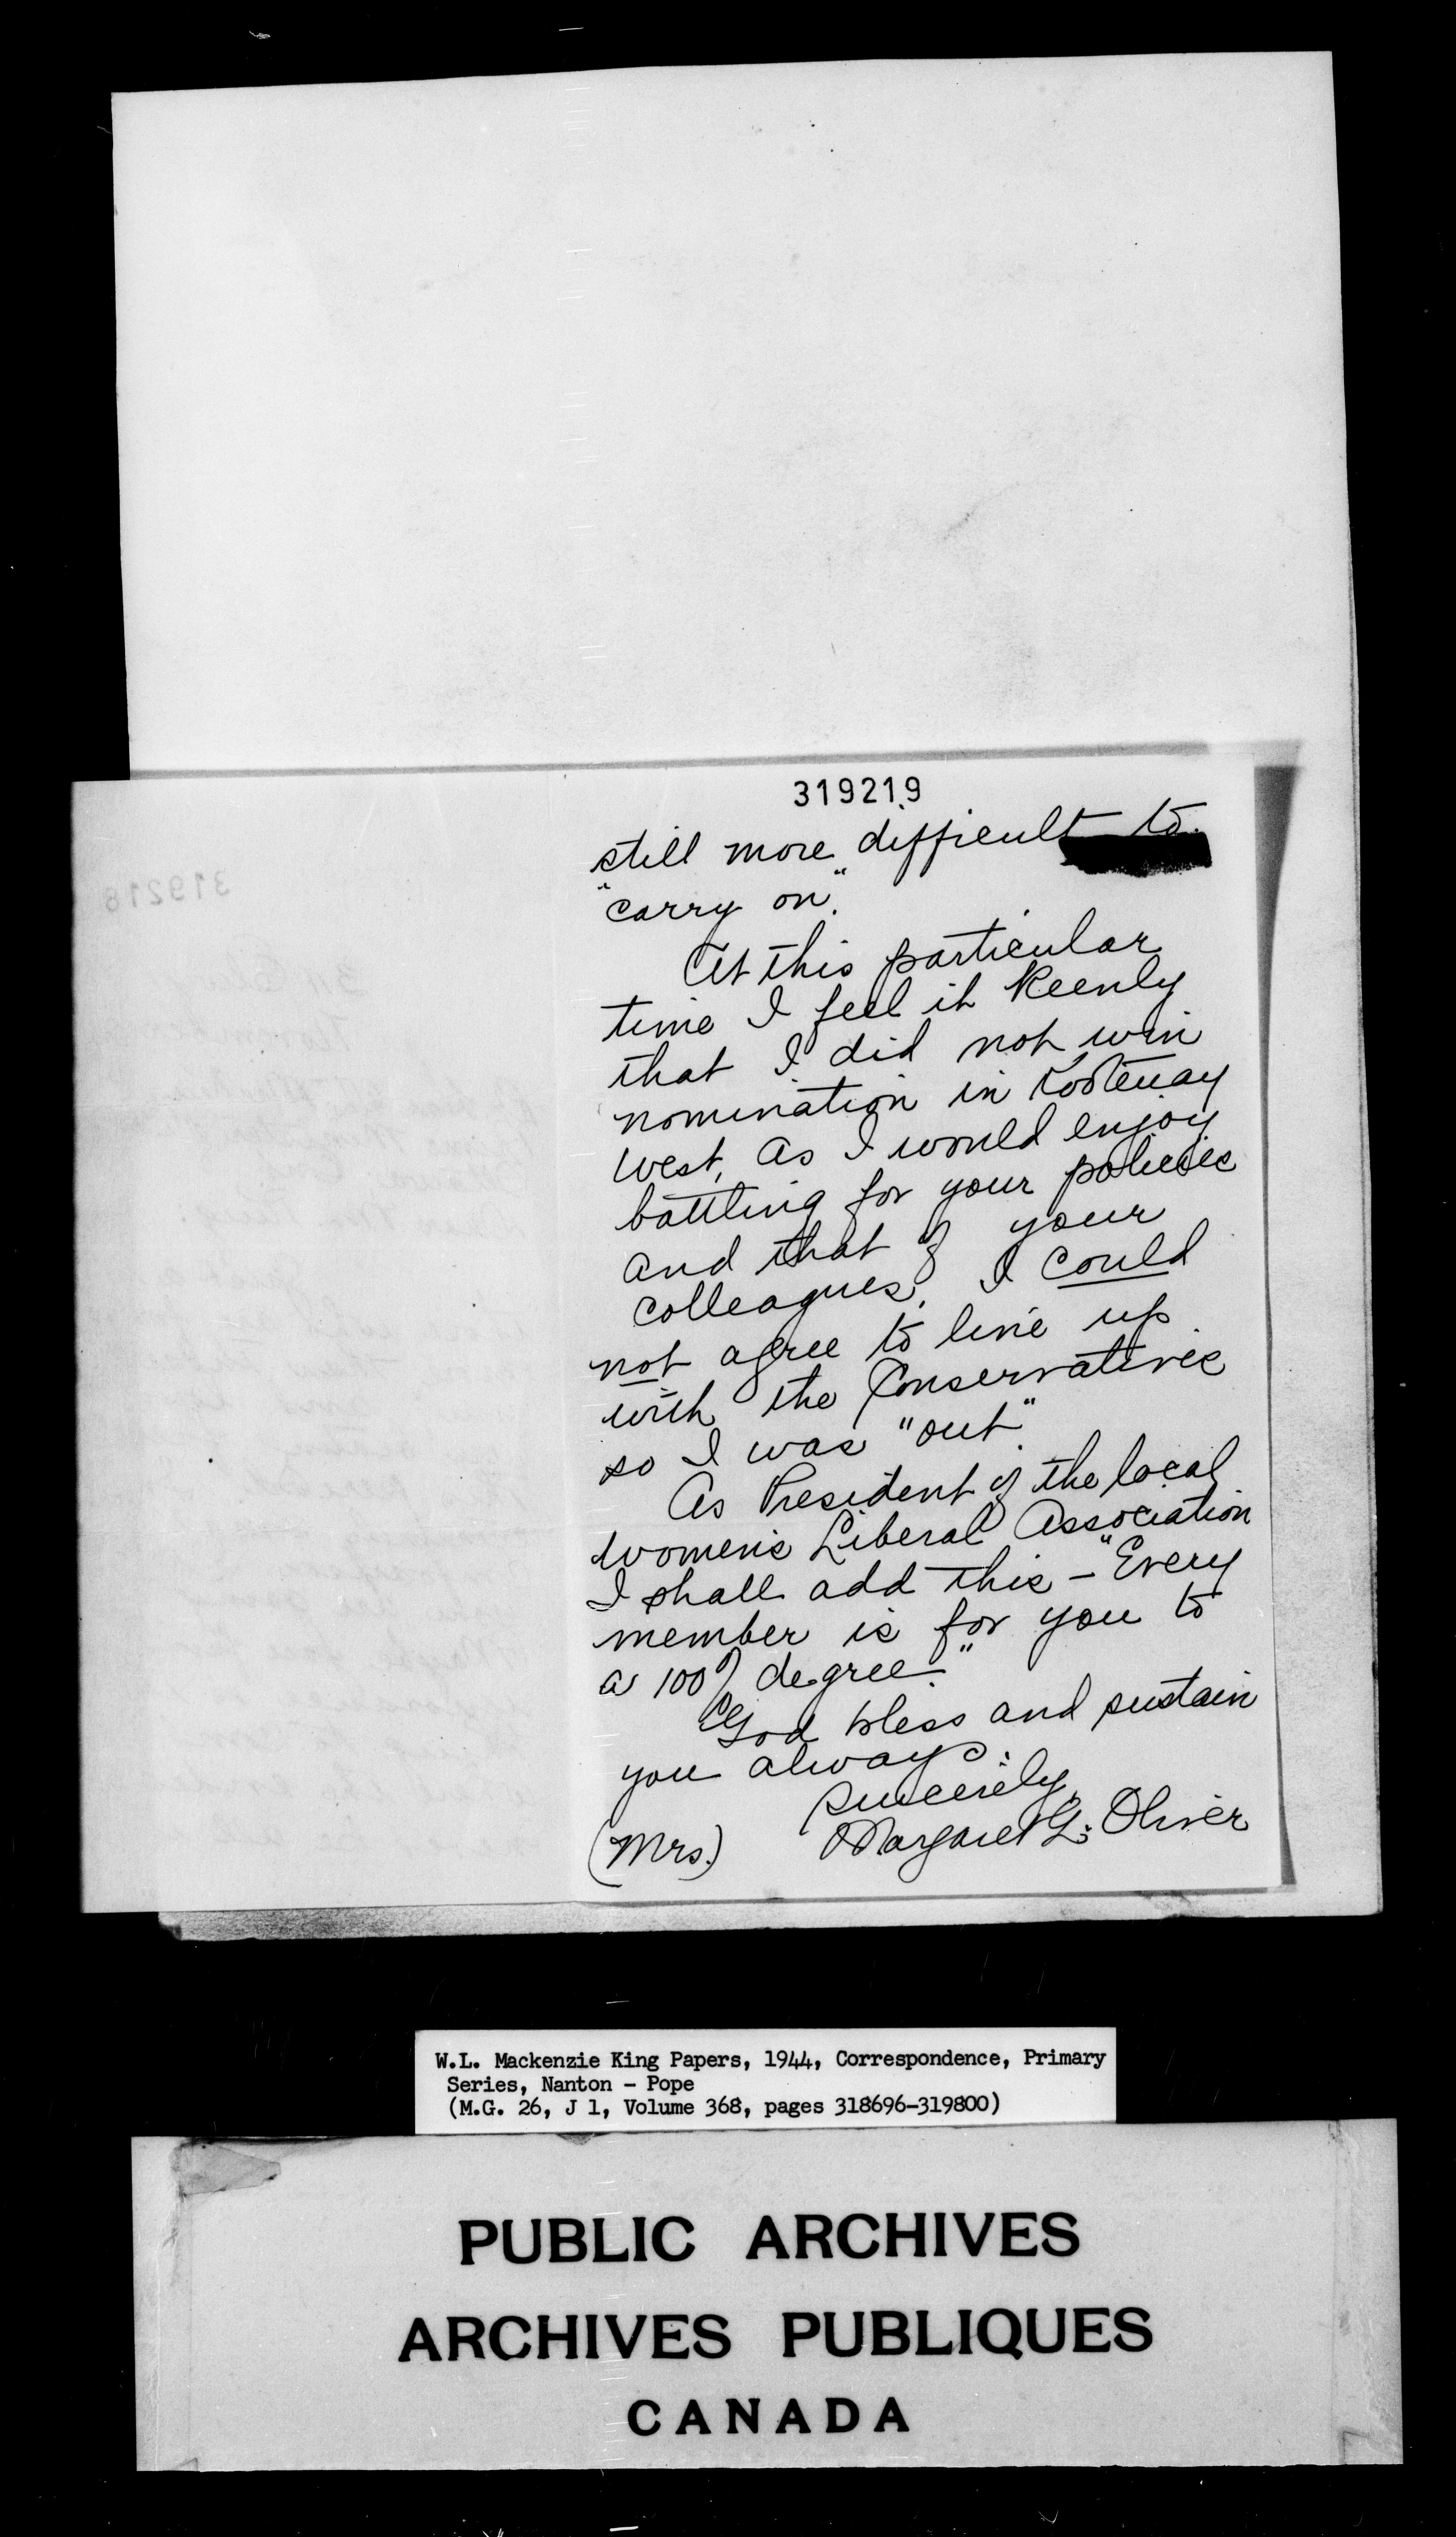 319219
still more difficult to
"carry on".
At this particular
time I feel it keenly
that I did not win
nomination in Kootenay
West, as I would enjoy
battling for your policies
and that of your
colleagues. I could
not agree to line up
with the Conservatives
so I was "out".
As President of the local
Women's Liberal Association
I shall add this – "Every
member is for you to
a 100% degree."
God bless and sustain
you always.
Sincerely,
(Mrs.) Margaret G. Oliver
319218
W.L. Mackenzie King Papers, 1944, Correspondence, Primary
Series, Nanton - Pope
(M.G. 26, J 1, Volume 368, pages 318696-319800)
PUBLIC ARCHIVES
ARCHIVES PUBLIQUES
CANADA